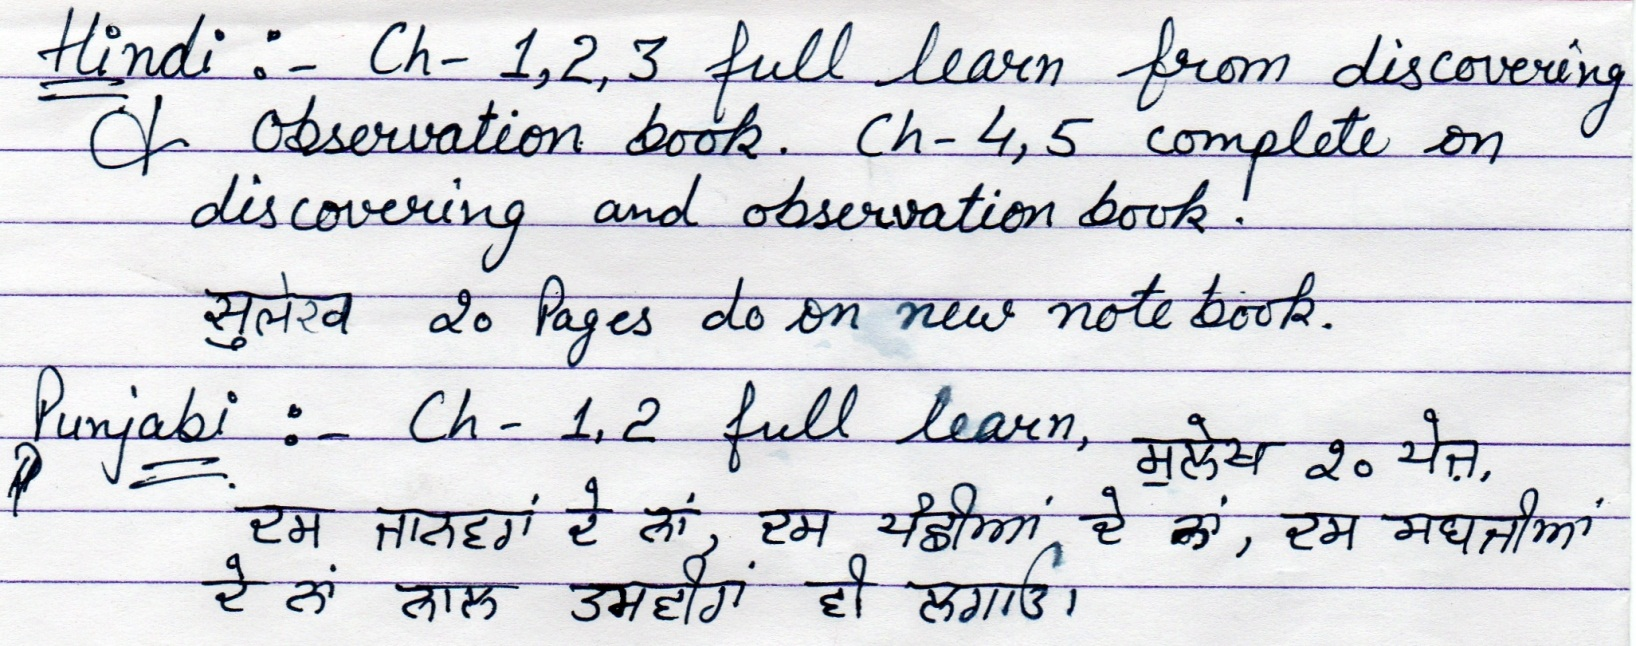 Hindi :- Ch- 1,2,3 full learn from discovering
& Observation book. Ch-4,5 complete on
discovering and observation book.
सुलेख २० Pages do on new note book.
Punjabi :- Ch- 1,2 full learn, ਸੁਲੇਖ २० ਪੇਜ਼,
ਦਸ ਜਾਨਵਰਾਂ ਦੇ ਨਾਂ, ਦਸ ਪੰਛੀਆਂ ਦੇ ਨਾਂ, ਦਸ ਸਬਜੀਆਂ
ਦੇ ਨਾਂ ਨਾਲ ਤਸਵੀਰਾਂ ਵੀ ਲਗਾਓ।